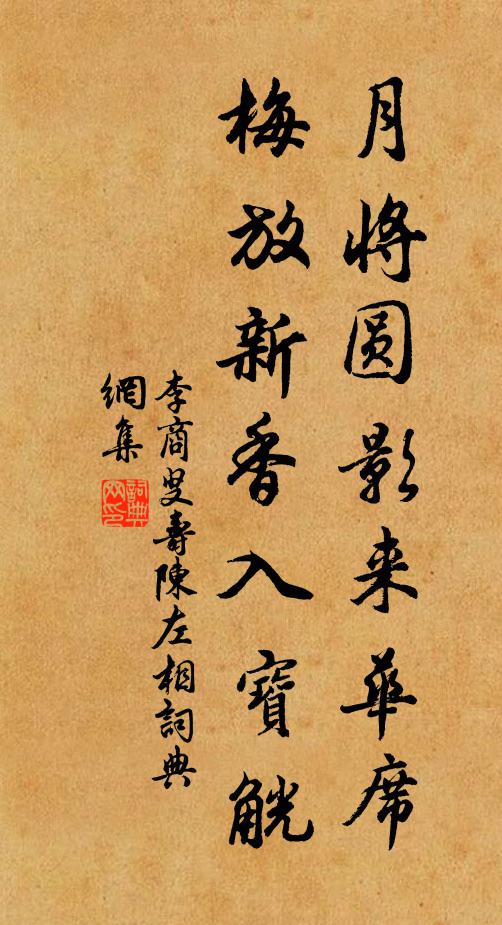 月將圆影来華席
梅放新香入寶觥
李商叟壽陳左相詞典
網集
詞典
网印